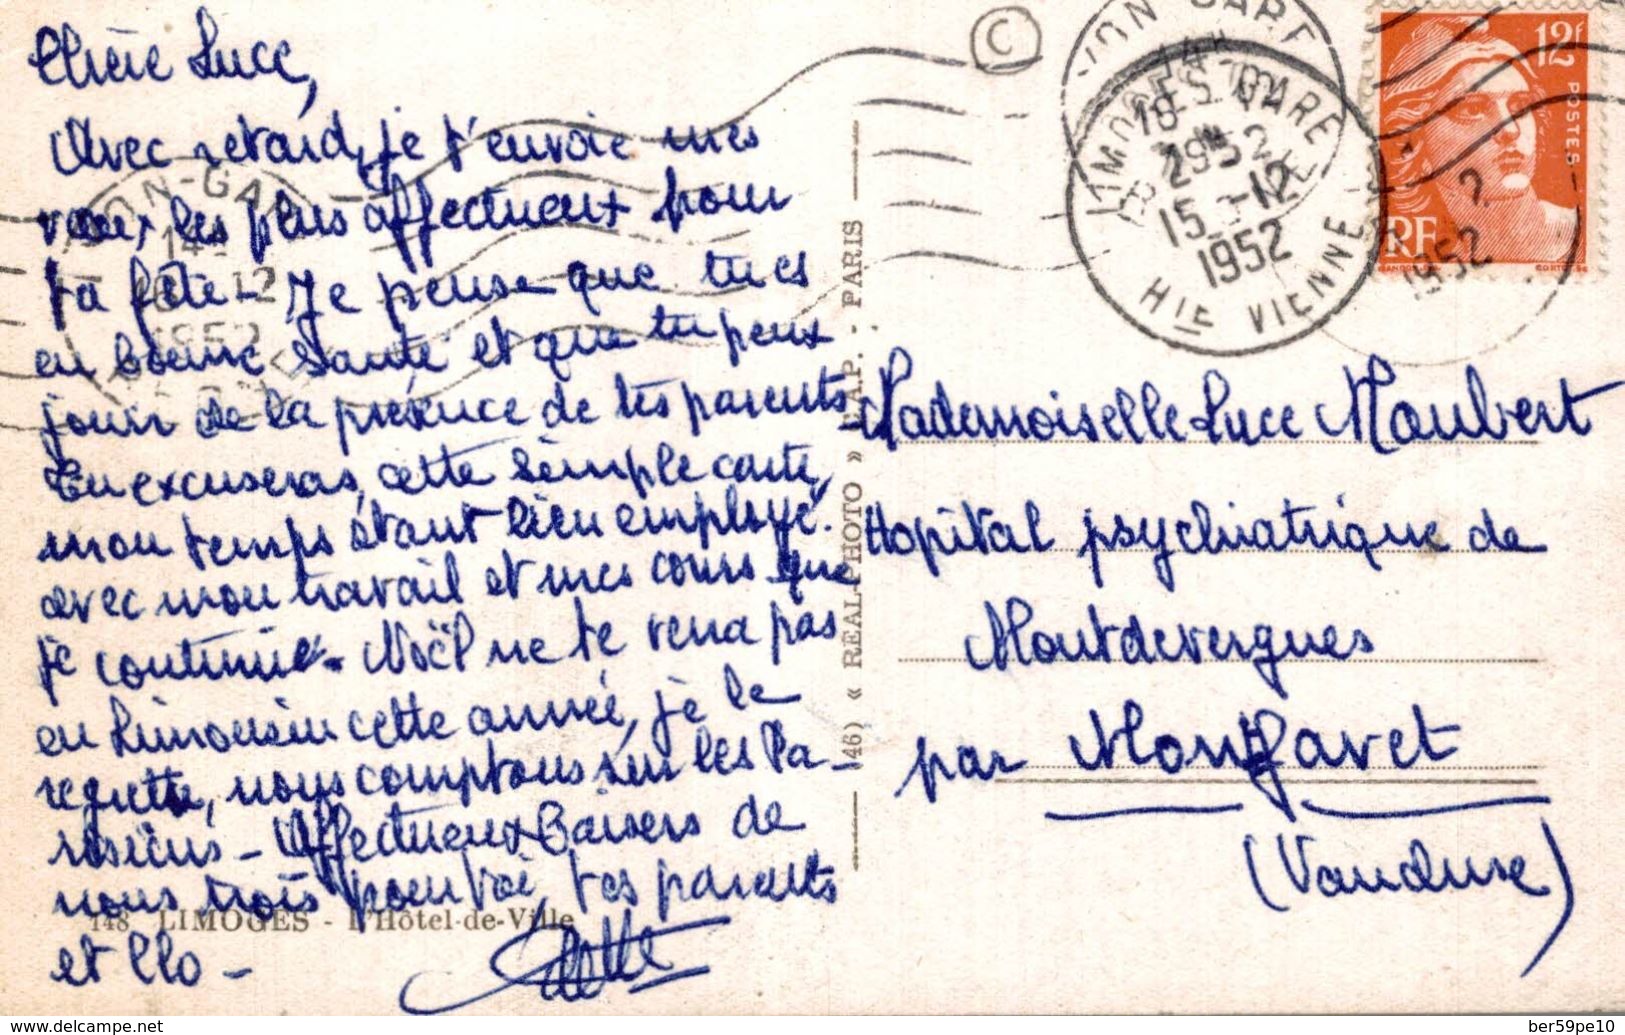 Chère Luce,
Avec retard, je t'envoie mes
vœux les plus affectueux pour
ta fête - Je pense que tu es
en bonne santé et que tu peux
jouir de la présence de tes parents
Tu excuseras cette simple carte,
mon temps étant bien employé.
avec mon travail et mes cours que
je continue - Noël ne te verra pas
en Limousin cette année, je le
regrette, nous comptons sur les Pa-
risiens - Affectueux Baisers de
nous trois pour toi, tes parents
et Clo -
148 LIMOGES - L'Hôtel-de-Ville
(46) « REAL-PHOTO » C.A.P. : PARIS
C
12F
POSTES
RF
LIMOGES GARE
15 -12
1952
HTE VIENNE
1952
Mademoiselle Luce Maubert
Hopital psychiatrique de
Montdevergues
par Montfavet
(Vaucluse)
delcampe.net
ber59pe10